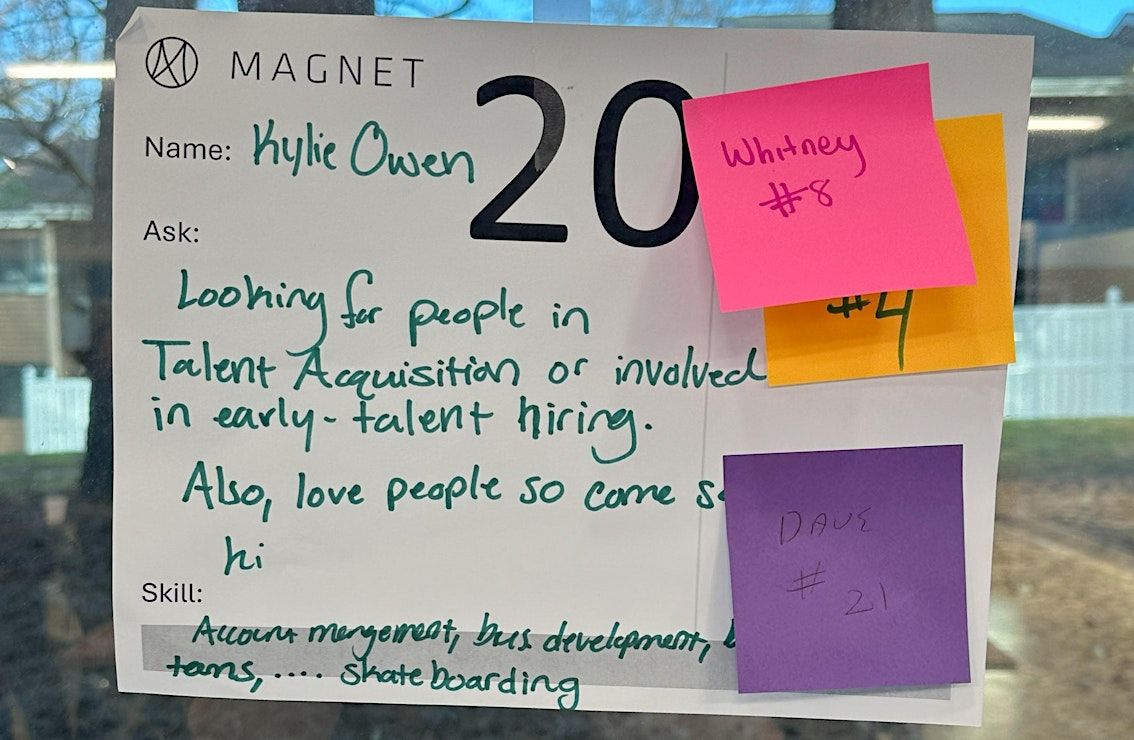 MAGNET
20
Name: Kylie Owen
Ask:
Looking for people in
Talent Acquisition or involved
in early-talent hiring.
Also, love people so come s
hi
Skill:
Account mangement, bus development, b
teams, .... skateboarding
Whitney
#8
#4
DAVE
# 21